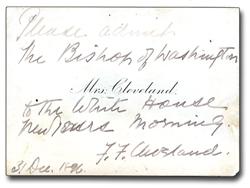 Please admit
the Bishop of Washington
Mrs. Cleveland.
to the White House
New Years Morning
F. F. Cleveland.
31 Dec. 1896.